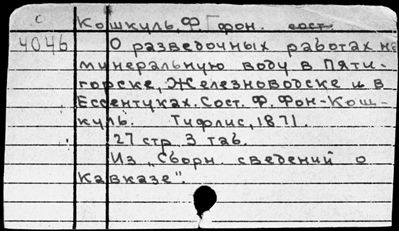 с
Кошкуль, Ф. фон. сост.
4046
О разведочных работах на
минеральную воду в Пяти-
горске, Железноводске и в
Ессентуках. Сост. Ф. Фон-Кош-
куль. Тифлис, 1871.
27 стр. 3 таб.
Из „Сборн. сведений о
Кавказе".